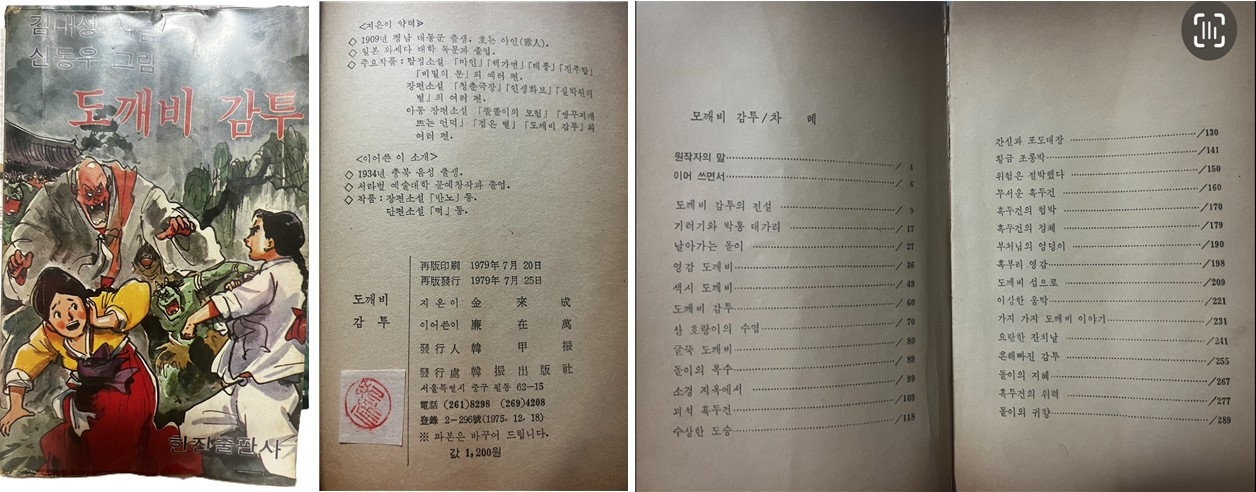 김내성 지음
신동우 그림
도깨비 감투
한진출판사
<지은이 약력>
◇ 1909년 평남 대동군 출생. 호는 아인(雅人).
◇ 일본 와세다 대학 독문과 졸업.
◇ 주요작품: 탐정소설 「마인」「백가면」「태풍」「진주탑」
「비밀의 문」외 여러 편.
장편소설 「청춘극장」「인생화보」「실락원의
별」외 여러 편.
아동 장편소설 「똘똘이의 모험」「쌍무지개
뜨는 언덕」「검은 별」「도깨비 감투」외
여러 편.
<이어쓴 이 소개>
◇ 1934년 충북 음성 출생.
◇ 서라벌 예술대학 문예창작과 졸업.
◇ 작품: 장편소설 「반노」등.
단편소설 「떡」등.
도깨비
감투
再版印刷 1979年 7月 20日
再版發行 1979年 7月 25日
지은이 金來成
이어쓴이 廉在萬
發行人 韓甲振
發行處 韓振出版社
서울특별시 중구 필동 63—15
電話 (261)8298 (269)4208
登錄 2—296號(1975. 12. 18)
※ 파본은 바꾸어 드립니다.
값 1,200원
도깨비 감투/차 례
원작자의 말/ 4
이어 쓰면서/ 6
도깨비 감투의 전설/ 9
기러기와 박통 대가리/ 17
날아가는 돌이/ 27
영감 도깨비/ 36
색시 도깨비/ 49
도깨비 감투/ 60
산 호랑이의 수염/ 70
굴뚝 도깨비/ 80
돌이의 복수/ 89
소경 지옥에서/ 99
괴적 흑두건/ 109
수상한 도승/ 118
간신과 포도대장/130
황금 조롱박/141
위험은 절박했다/150
무서운 흑두건/160
흑두건의 협박/170
흑두건의 정체/179
부처님의 엉덩이/190
혹부리 영감/198
도깨비 섬으로/209
이상한 움막/221
가지 가지 도깨비 이야기/231
요란한 잔치날/241
은해빠진 감투/255
돌이의 지혜/267
흑두건의 위력/277
돌이의 귀향/289